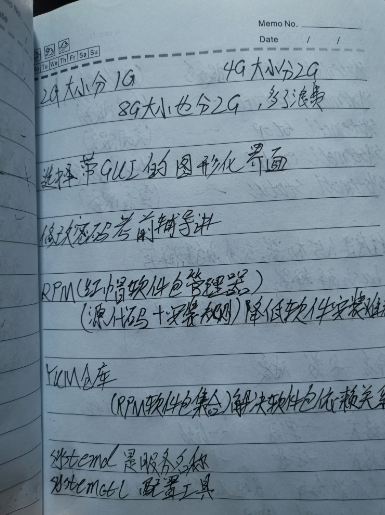 Memo No.
Date / /
Mo Tu We Th Fr Sa Su
2G大小分1G 4G大小分2G
8G大小也分2G,多了浪费
选择带GUI的图形化界面
修改密码考前辅导讲
RPM(红帽软件包管理器)
(源代码+安装规则)降低软件安装难
YUM仓库
(RPM软件包集合)解决软件包依赖关系
systemd 是服务名称
systemctl 配置工具